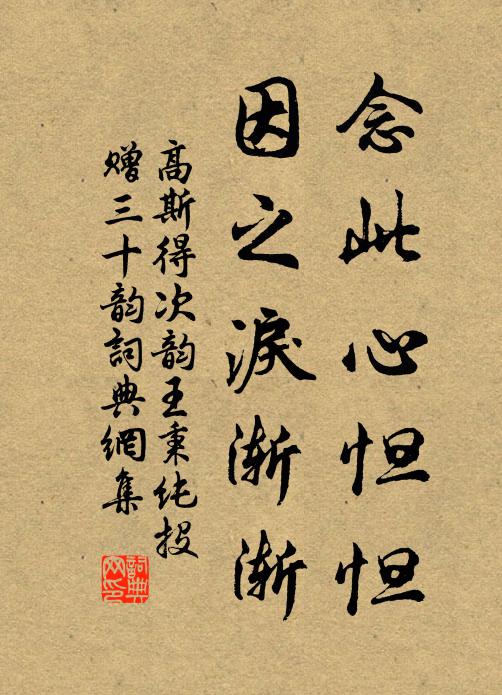 念此心怛怛
因之淚渐渐
高斯得次韵王秉纯投
赠三十韵詞典網集
詞典
网印